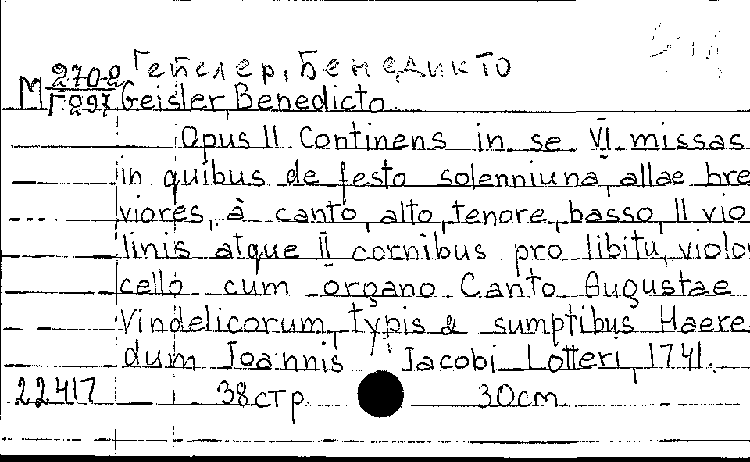 М 270-2 Гейслер, Бенедикто
Г297 Geisler, Benedicto
Opus II Continens in se VI missas
in quibus de festo solenniuna, allae bre
viores, à canto, alto, tenore, basso, II vio
linis atque II cornibus pro libitu, violon
cello cum organo. Canto. Augustae
Vindelicorum, typis & sumptibus Haere
dum Joannis Jacobi Lotteri, 1741.
22417 38стр. 30cm